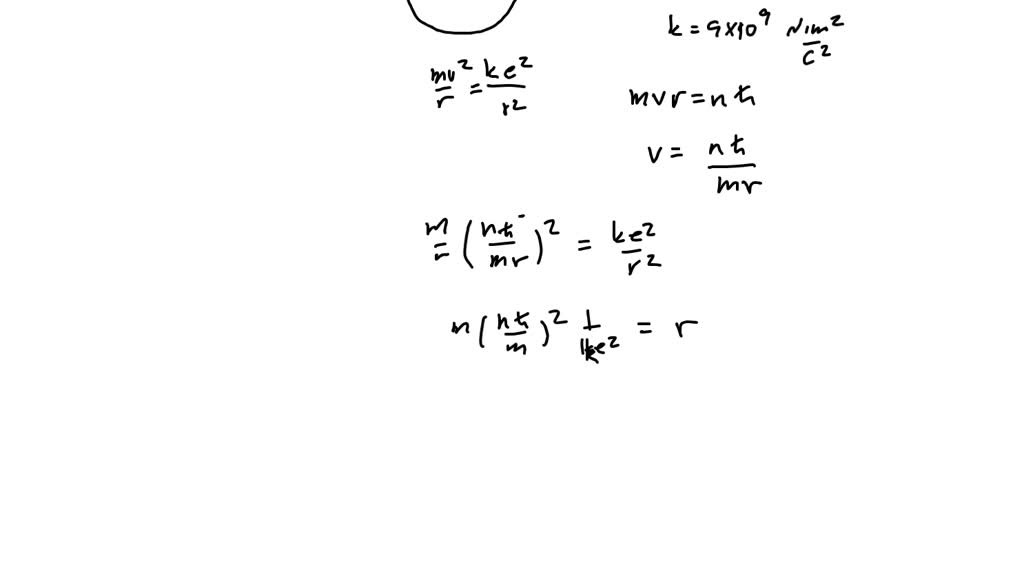 k = 9×10⁹ N·m²/C²
mv²/r = ke²/r²
mvr = nħ
v = nħ/mr
m/r (nħ/mr)² = ke²/r²
m (nħ/m)² 1/ke² = r